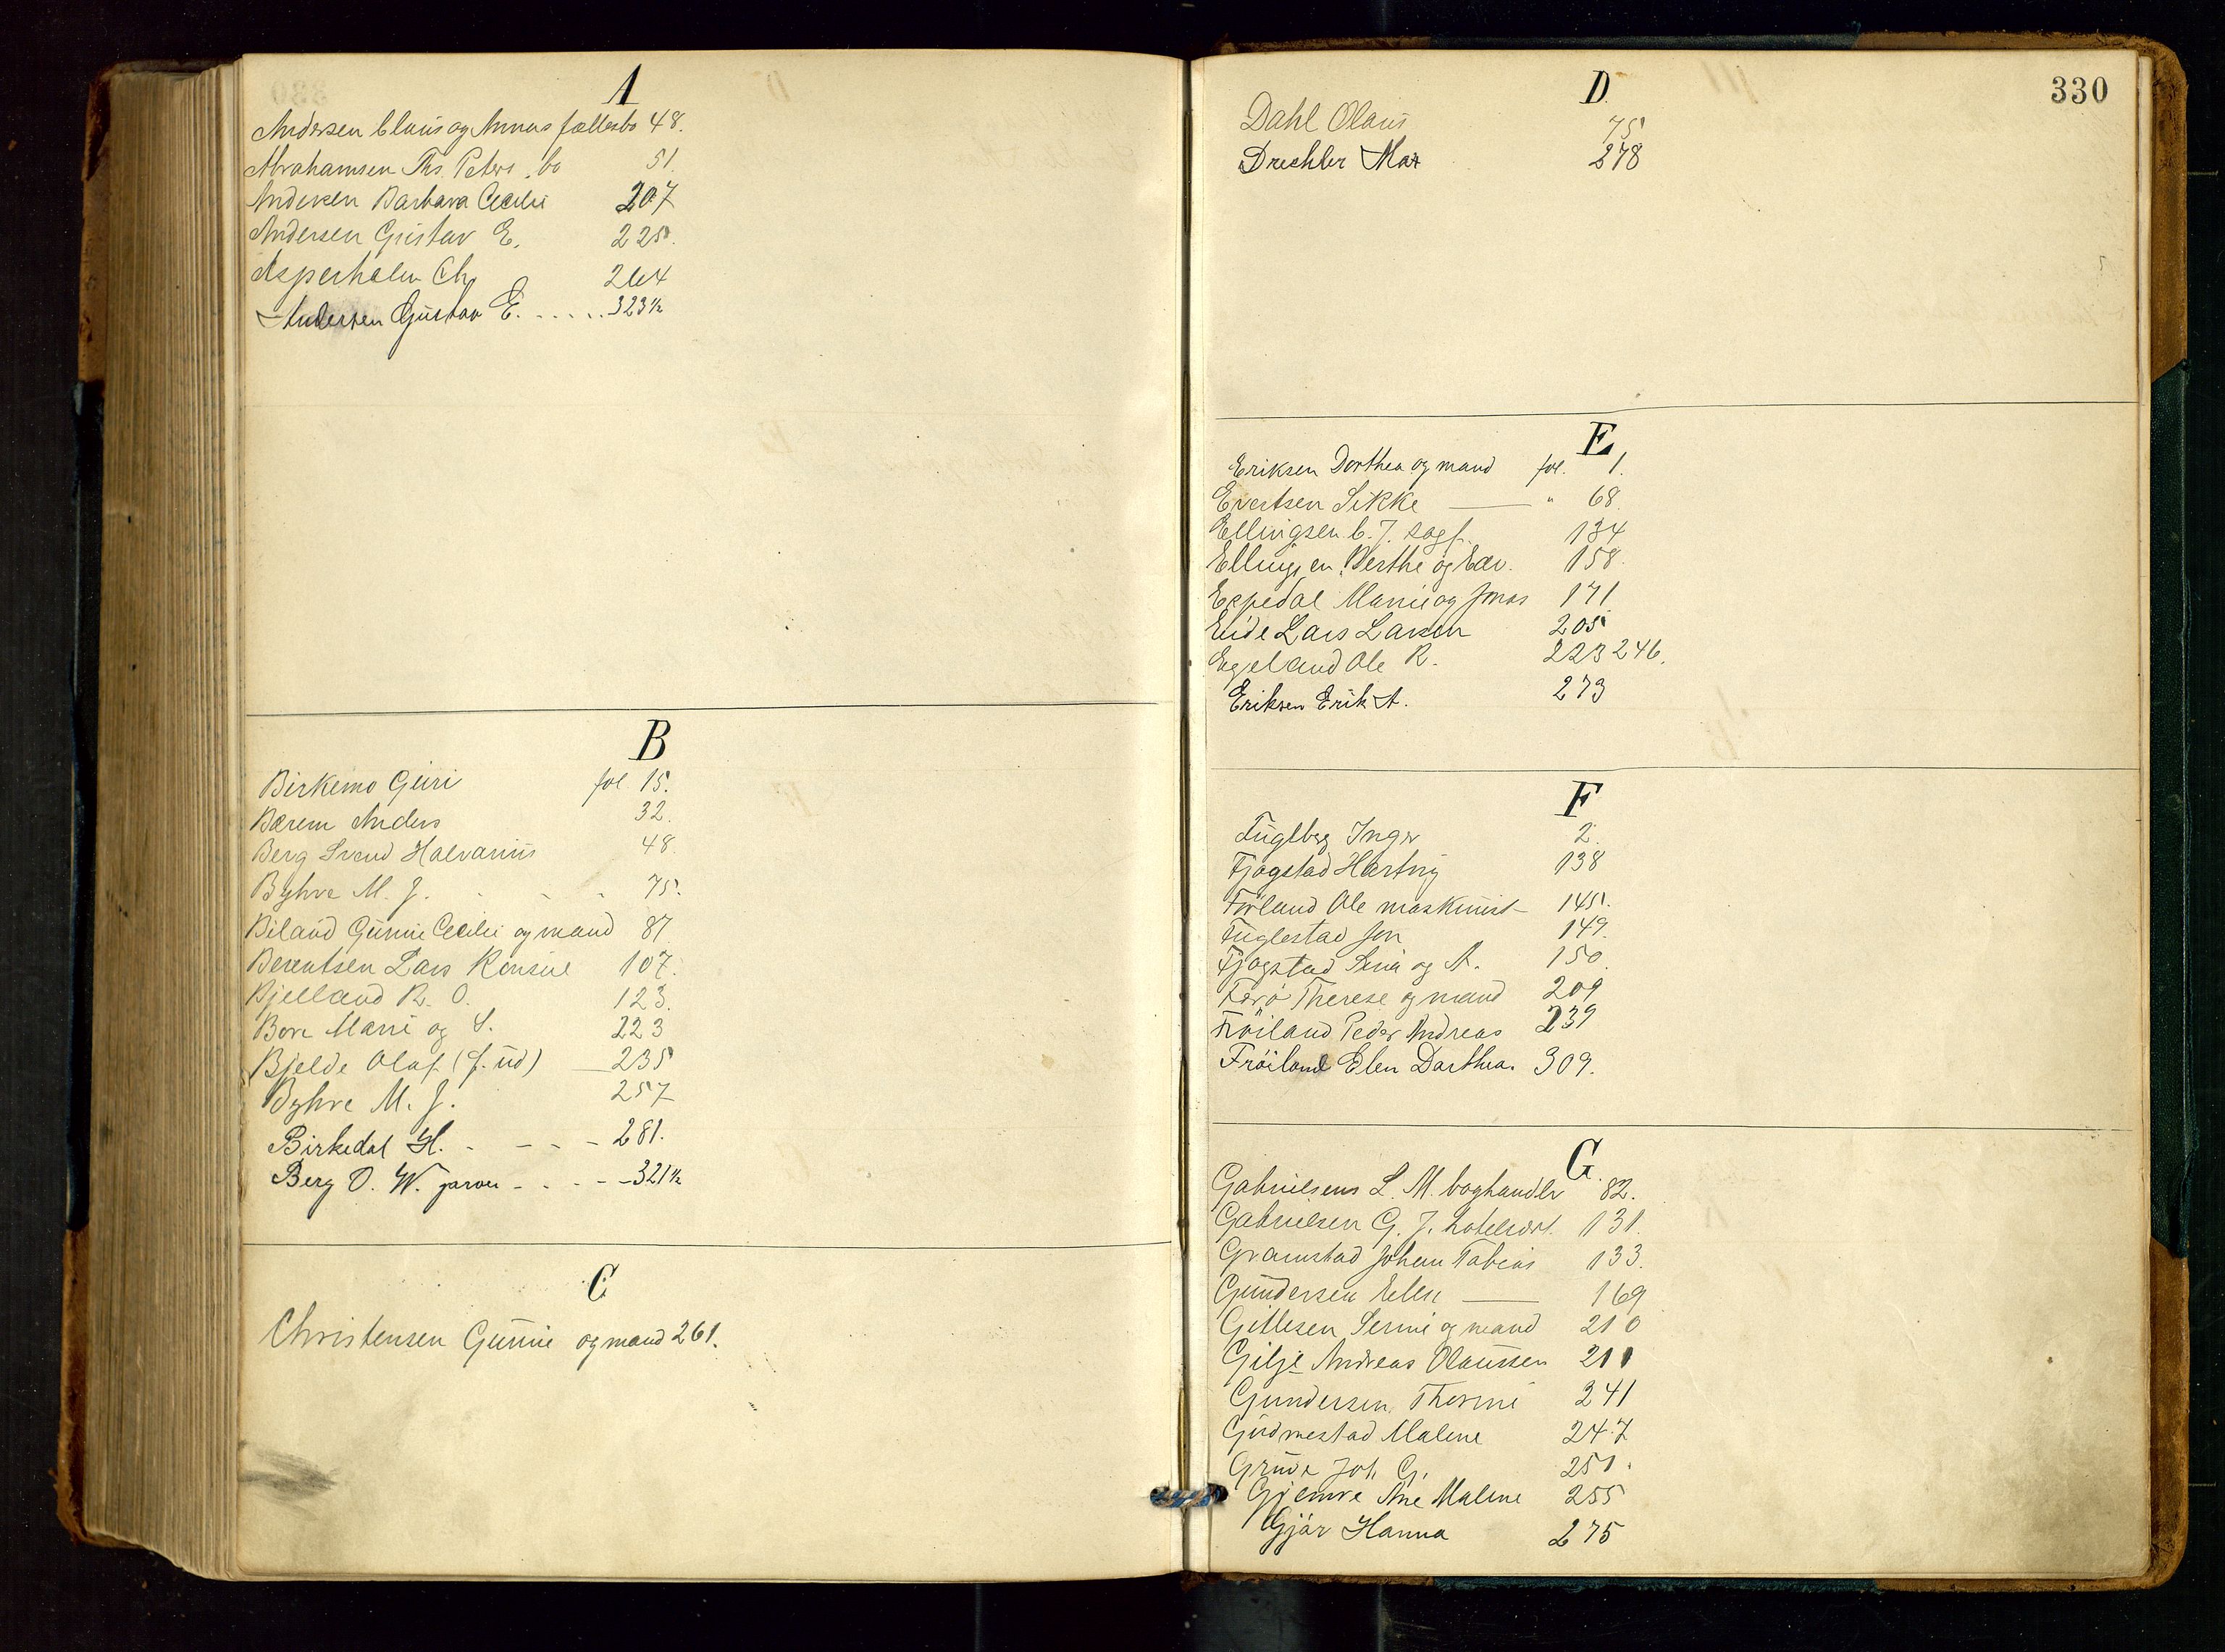 A
Andersen Claus og Annas fællesbo 48.
Abrahamsen Ths. Peters. bo 51.
Andersen Barbara Cecilie 207
Andersen Gustav E. 225.
Aspeholm Ch. 264
Andersen Gustav E. ..... 323½
B
Birkemo Guri fol 15.
Bærem Anders 32.
Berg Svend Halvarius 48.
Byhre M. J. - - - 75.
Biland Gunie Cecilie og mand 87
Berentsen Lars Konsul 107.
Bjelland R. O. 123.
Bore Marie og S. 223
Bjelde Olaf (f. ud) 235
Byhre M. J. 257
Birkedal H. - - - - 281.
Berg O. W. - - - - - 321½
C
Christensen Gunie og mand 261.
330
D.
Dahl Olaus 75
Drechler Max 278
E
Eriksen Dorthea og mand fol. 1.
Evertsen Sikke — " 68.
Ellingsen C. J. sagf. 134
Ellingsen, Berthe og Edv. 158.
Espedal Marie og Jonas 171.
Eide Lars Larsen 205
Egeland Ole R. 223 246.
Eriksen Erik A. 273
F
Fuglberg Inger 2.
Fjogstad Hartvig 138
Førland Ole maskinist 145.
Fuglestad Jon 149.
Fjogstad Sina og A. 150.
Færø Therese og mand 209
Frøiland Peder Andreas 239
Frøiland Elen Dorthea. 309.
G.
Gabrielsens L. M. boghandler 82.
Gabrielsen G. J. hotelvært. 131.
Gramstad Johan Tobias 133.
Gundersen Ellen — 169
Gillesen Serine og mand 210
Gilje Andreas Olaussen 211
Gundersen Thorine 241
Gudmestad Malene 247
Grude Joh. G. 251.
Gjemre Ane Malene 255
Gjør Hanna 275